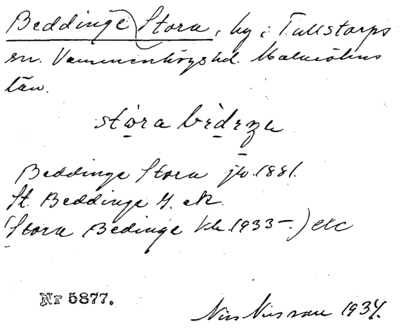 Beddinge Stora, by i Tullstorps
sn. Vemmenhögs hd. Malmöhus
län.
stóra bèdɩŋə
Beddinge Stora jb 1881.
St. Beddinge G. ek.
(Stora Bedinge kb. 1933-.) etc
Nr 5877.
Nils Nilsson 1934.